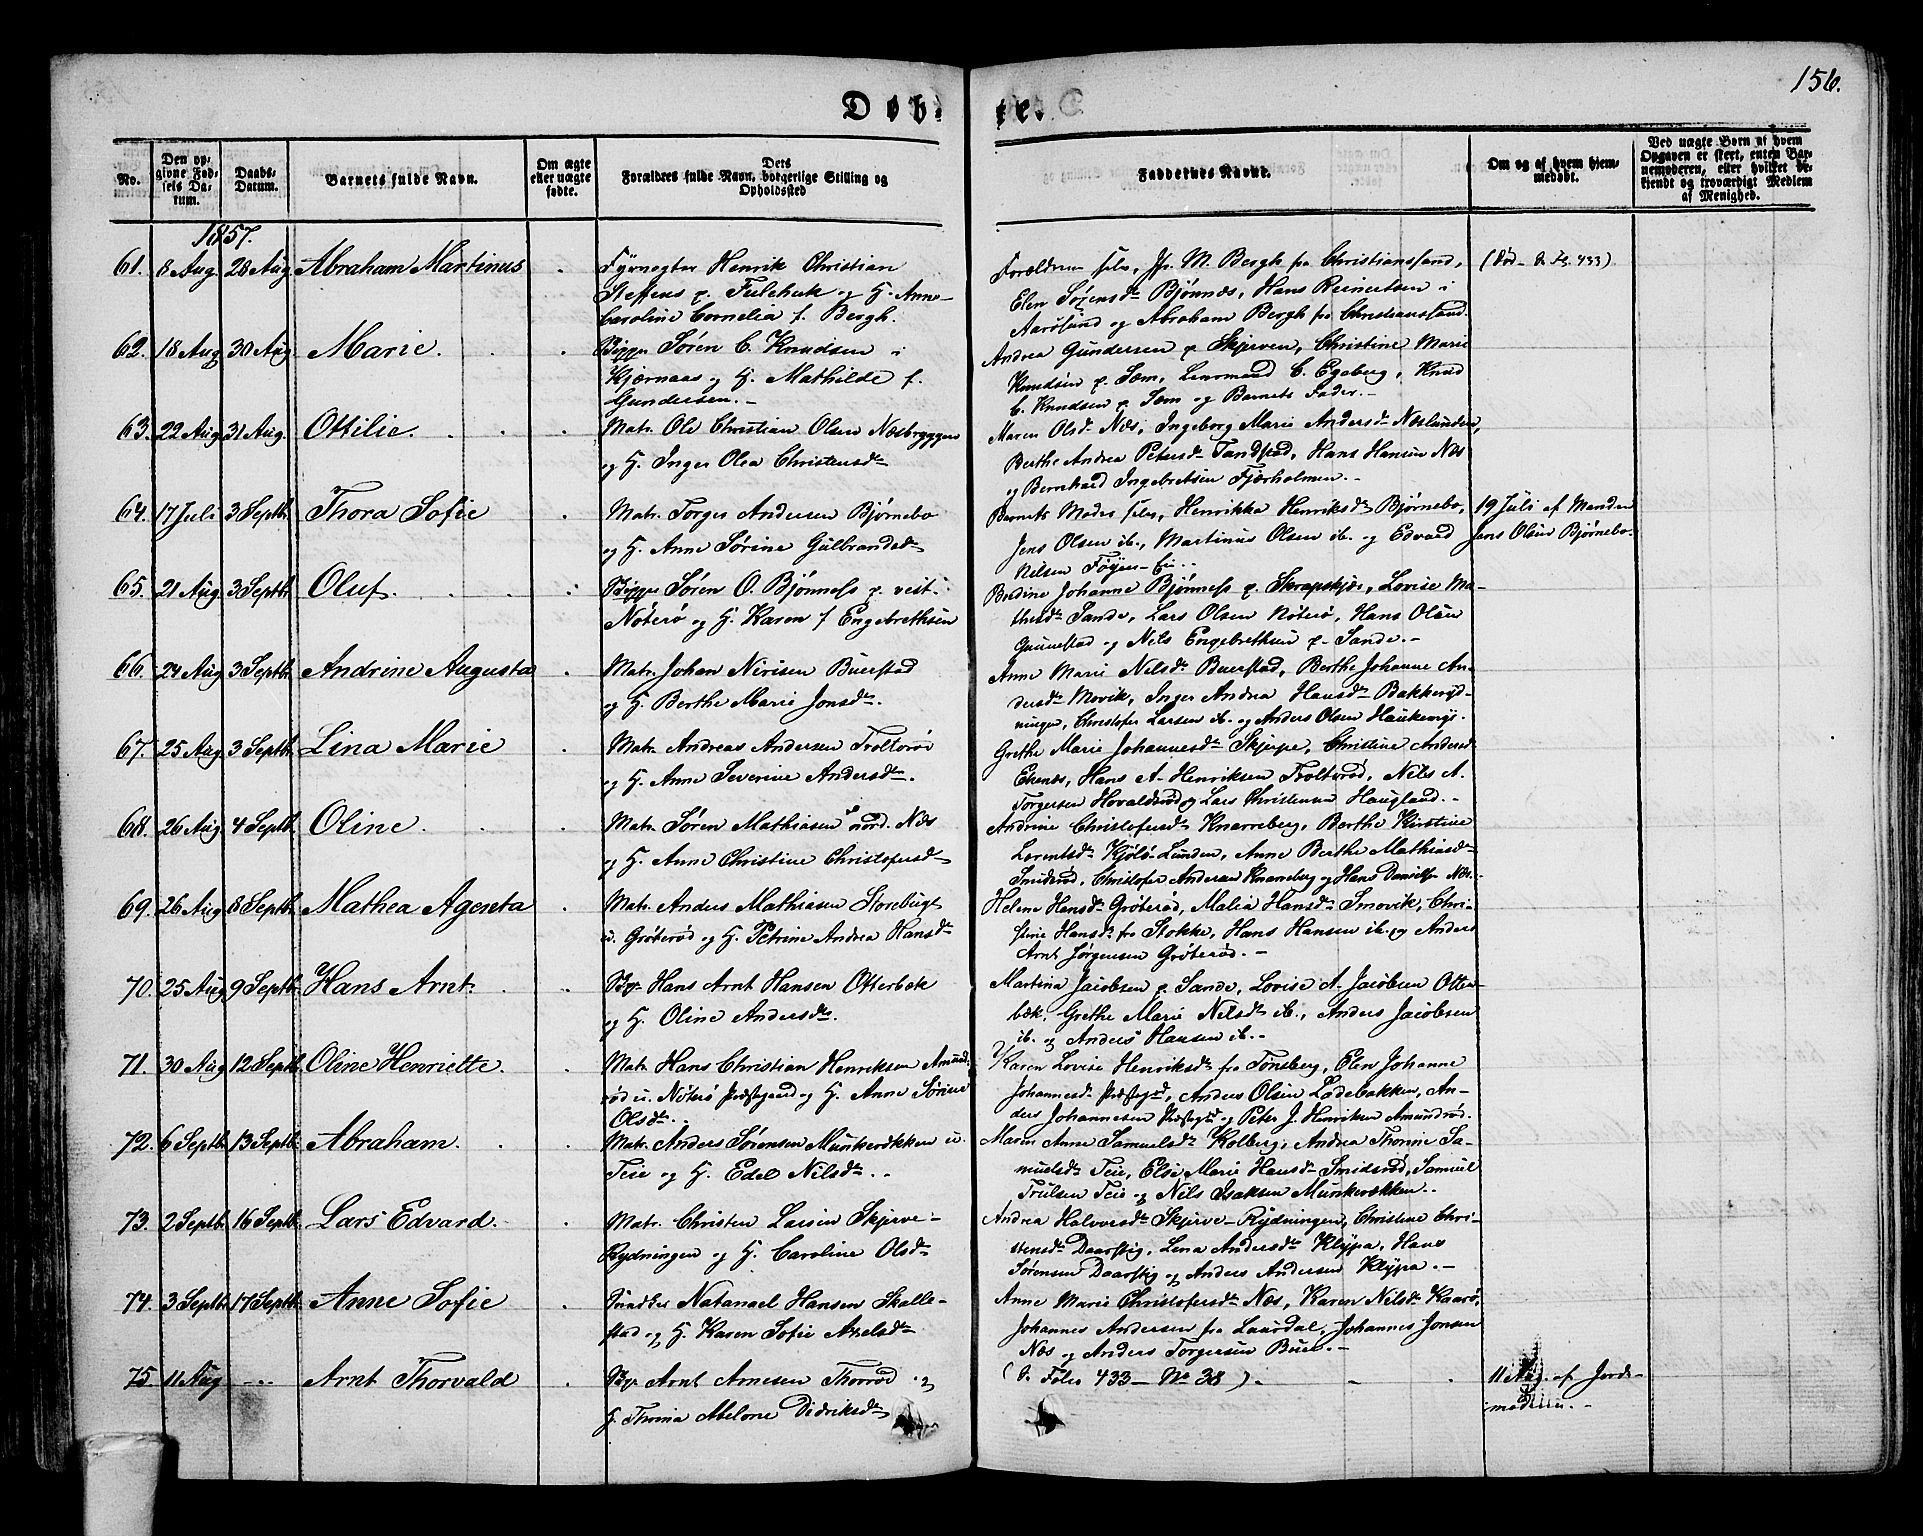 156.
Døbte.
No.
Den opgivne Fødsels Datum.
Daabs-Datum.
Barnets fulde Navn.
Om ægte eller uægte fødte.
Dets Forældres fulde Navn, borgerlige Stilling og Opholdssted
Faddernes Navne.
Om og af hvem hjemmedøbt.
Ved uægte Børn af hvem Opgaven er skeet, enten Barnemoderen, eller hvilket bekjendt og troværdigt Medlem af Menighed.
1857.
61. 8 Aug 28 Aug Abraham Martinus
Fyrvogter Henrik Christian
Steffens p. Fulehuk og H. Anne
Caroline Cornelia f. Bergh.
Forældrene selv, Jfr. M. Bergh fra Christianssand,
Elen Sørensdr Bjønnæs, Hans Reinertsen i
Aarøsund og Abraham Bergh fra Christianssand.
62. 18 Aug 30 Aug Marie.
Bygger Søren C. Knudsen i
Kjærnaas og H. Mathilde f.
Gundersen.-
Andrea Gundersen p. Skjerven, Christine Marie
Knudsen p. Sæm, Lensmand C. Egeberg, Knud
C. Knudsen p. Sæm og Barnets Fader.-
63. 22 Aug 31 Aug. Ottilie.
Matr. Ole Christian Olsen Næsbryggen
og H. Inger Olea Christensdr
Maren Olsdr Næs, Ingeborg Marie Andersdr Næslunden,
Berthe Andrea Petersdr Tandstad, Hans Hansen Næs
og Bernhard Ingebretsen Fjærholmen.-
64. 17 Juli 3 Septb. Thora Sofie
Matr. Torger Andersen Bjørnebo
og H. Anne Sørine Gulbrandsdr
Barnets Moder selv, Henrikka Henriksdr Bjørnebo,
Jens Olsen ib., Martinus Olsen ib. og Edvard
Nilsen Føyen
19 Juli af Manden
Jens Olsen Bjørnebo.
65. 21 Aug 3 Septb. Oluf.
Bygger Søren O. Bjønness p. vest-
Nøterø og H. Karen f Engebrethsen
Berdine Johanne Bjønness p. Skrapskjær, Lovise Ma-
thisdr Sande, Lars Olsen Nøterø, Hans Olsen
Gunnestad og Nils Engebrethsen p. Sande.-
66. 24 Aug 3 Septb. Andrine Augusta
Matr. Johan Nirisen Buerstad
og H. Berthe Marie Jonsdr.
Anne Marie Nilsdr Buerstad, Berthe Johanne An-
dersdr Movik, Inger Andrea Hansdr Bakkeryd-
ningen, Christofer Larsen ib. og Anders Olsen
67. 25 Aug 3 Septb. Lina Marie
Matr. Andreas Andersen Troltvrød
og H. Anne Severine Andersdr.
Grethe Marie Johannesdr Skjerpe, Christine Andersd
Ekenes, Hans A. Henriksen Troltvrød, Nils A.
Torgersen Hovaldsrød og Lars Christensen Haugland.-
68. 26 Aug 4 Septb. Oline.
Matr. Søren Mathiasen nord. Næs
og H. Anne Christine Christofersdr
Andrine Christofersdr Knarreberg, Berthe Kirstine
Lorentsdr Kjølø-Lunden, Anne Berthe Mathiasdr
Smidsrød, Christofer Andersen Knarreberg og Hans Danielsen Næs.-
69. 26 Aug 8 Septb. Mathea Agenta
Matr. Anders Mathiasen Storebugt
u. Grøterød og H. Petrine Andrea Hansdr
Helene Hansdr Grøterød, Malia Hansdr Smovik, Chri-
stine Hansdr fra Stokke, Hans Hansen ib. og Anders
Arnt Jørgensen Grøterød.-
70. 25 Aug 9 Septb. Hans Arnt.
Byr. Hans Arnt Hansen Otterbæk
og H. Oline Andersdr.
Martina Jacobsen p. Sande, Lovise A. Jacobsen Otter-
bæk, Grethe Marie Nilsdr ib., Anders Jacobsen
ib. og Anders Hansen ib.-
71. 30 Aug 12 Septb. Oline Henriette.
Matr. Hans Christian Henriksen Amund-
rød u. Nøterø Præstegaard og H. Anne Sørine
Olsdr.
Karen Lovise Henriksdr fra Tønsberg, Elen Johanne
Johannesdr Præstegd, Anders Olsen Ladebakken, An-
ders Johannesen Præstegd og Peter J. Henriksen Amundrød.
72. 6 Septb. 13 Septb. Abraham.
Matr. Anders Sørensen Munkerækken u.
Teie og H. Edel Nilsdr.
Maren Anne Samuelsdr Kolberg, Andrea Thorine Sa-
muelsdr Teie, Elsi Marie Hansdr Smidsrød, Samuel
Trulsen Teie og Nils Isaksen Munkerækken.
73. 2 Septb. 16 Septb. Lars Edvard.
Matr. Christen Larsen Skjerve-
Rydningen og H. Caroline Olsdr
Andrea Halvorsdr Skjerve-Rydningen, Christine Chri-
stensdr Daarstig, Lena Andersdr Klypa, Hans
Sørensen Daarstig og Anders Andersen Klypa.-
74. 3 Septb. 17 Septb. Anne Sofie
Natanael Hansen Skalle-
stad og H. Karen Sofie Axelsdr
Anne Marie Christofersdr Næs, Karen Nilsdr Kaarø,
Johannes Andersen fra Laurdal, Johannes Jonsen
Næs og Anders Torgersen Buer.-
75. 11 Aug Arnt Thorvald
Byr. Arnt Arnesen Thorrød og
H. Thorina Abelone Didriksdr
(V. Folio 433 - No 38).
11 Aug. af Jorde-
moderen.-